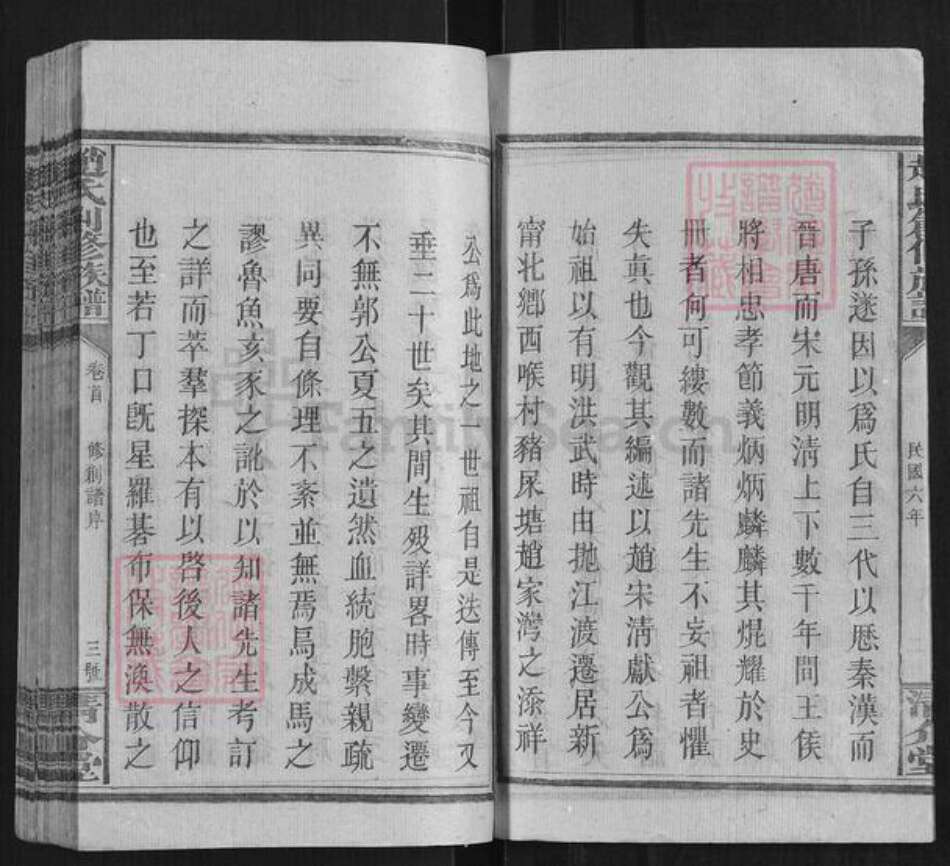 民國六年
子孫遂因以爲氏自三代以厯秦漢而
晉唐而宋元明淸上下數千年間王侯
將相忠孝節義炳炳麟麟其焜耀於史
冊者何可縷數而諸先生不妄祖者懼
失眞也今觀其編述以趙宋淸獻公爲
始祖以有明洪武時由拋江渡遷居新
甯北鄉西喉村豬屎塘趙家灣之添祥
公爲此地之一世祖自是迭傳至今又
垂二十世矣其間生歿詳畧時事變遷
不無郭公夏五之遺然血統胞繫親疏
異同要自條理不紊並無焉烏成馬之
謬魯魚亥豕之訛於以知諸先生考訂
之詳而萃羣探本有以啓後人之信仰
也至若丁口旣星羅碁布保無渙散之
趙氏刱修族譜
卷首
修刱譜序
三號
淸介堂